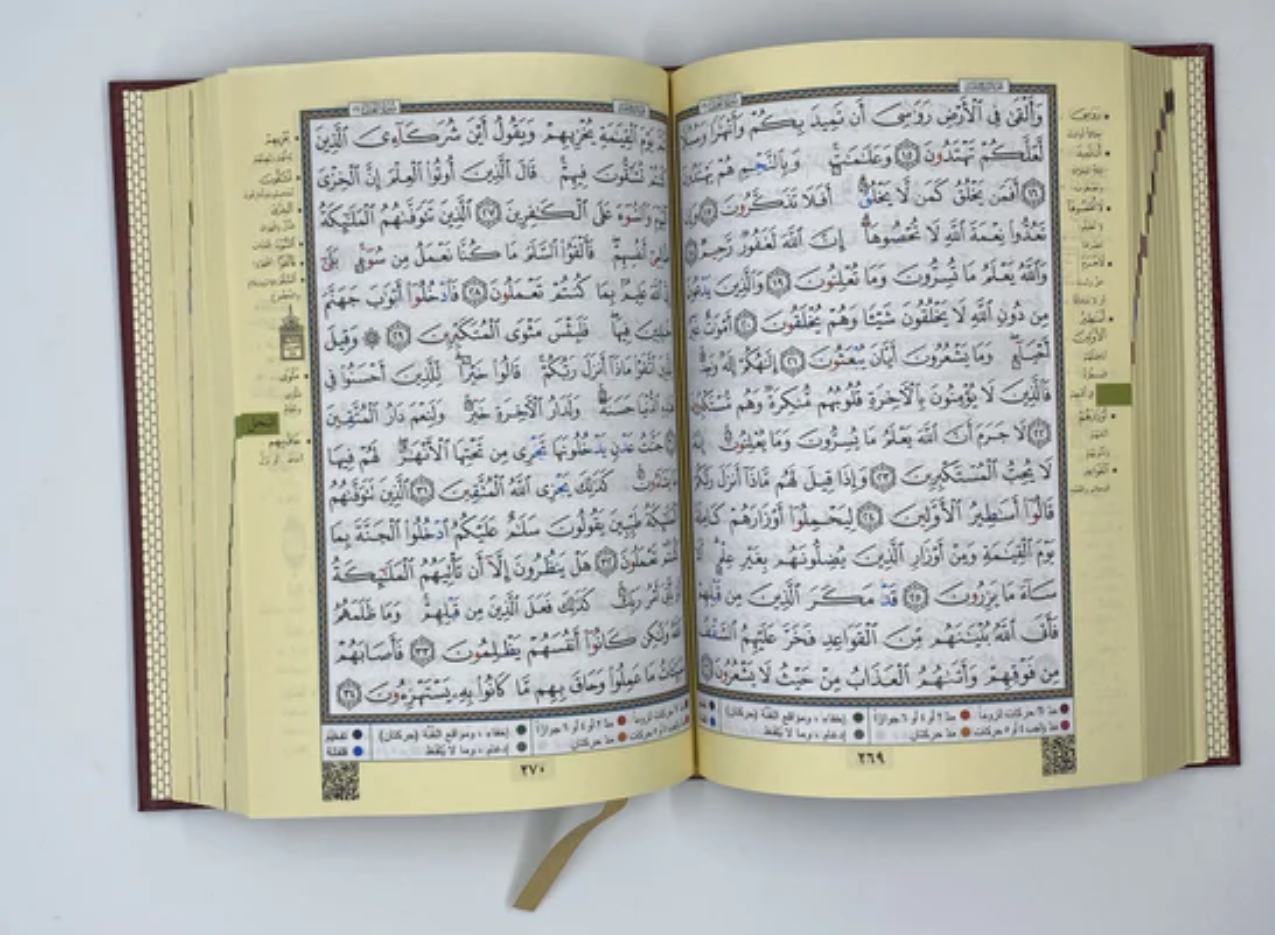 وَأَلْقَىٰ فِى ٱلْأَرْضِ رَوَٰسِىَ أَن تَمِيدَ بِكُمْ وَأَنْهَٰرًا وَسُبُلًا
لَّعَلَّكُمْ تَهْتَدُونَ ١٥ وَعَلَٰمَٰتٍ ۚ وَبِٱلنَّجْمِ هُمْ يَهْتَدُونَ
١٦ أَفَمَن يَخْلُقُ كَمَن لَّا يَخْلُقُ ۗ أَفَلَا تَذَكَّرُونَ ١٧ وَإِن
تَعُدُّوا۟ نِعْمَةَ ٱللَّهِ لَا تُحْصُوهَآ ۗ إِنَّ ٱللَّهَ لَغَفُورٌ رَّحِيمٌ ١٨
وَٱللَّهُ يَعْلَمُ مَا تُسِرُّونَ وَمَا تُعْلِنُونَ ١٩ وَٱلَّذِينَ يَدْعُونَ
مِن دُونِ ٱللَّهِ لَا يَخْلُقُونَ شَيْـًٔا وَهُمْ يُخْلَقُونَ ٢٠ أَمْوَٰتٌ غَيْرُ
أَحْيَآءٍ ۖ وَمَا يَشْعُرُونَ أَيَّانَ يُبْعَثُونَ ٢١ إِلَٰهُكُمْ إِلَٰهٌ وَٰحِدٌ ۚ
فَٱلَّذِينَ لَا يُؤْمِنُونَ بِٱلْءَاخِرَةِ قُلُوبُهُم مُّنكِرَةٌ وَهُم مُّسْتَكْبِرُونَ
٢٢ لَا جَرَمَ أَنَّ ٱللَّهَ يَعْلَمُ مَا يُسِرُّونَ وَمَا يُعْلِنُونَ ۚ إِنَّهُۥ
لَا يُحِبُّ ٱلْمُسْتَكْبِرِينَ ٢٣ وَإِذَا قِيلَ لَهُم مَّاذَآ أَنزَلَ رَبُّكُمْ
قَالُوٓا۟ أَسَٰطِيرُ ٱلْأَوَّلِينَ ٢٤ لِيَحْمِلُوٓا۟ أَوْزَارَهُمْ كَامِلَةً
يَوْمَ ٱلْقِيَٰمَةِ وَمِنْ أَوْزَارِ ٱلَّذِينَ يُضِلُّونَهُم بِغَيْرِ عِلْمٍ ۗ أَلَا
سَآءَ مَا يَزِرُونَ ٢٥ قَدْ مَكَرَ ٱلَّذِينَ مِن قَبْلِهِمْ
فَأَتَى ٱللَّهُ بُنْيَٰنَهُم مِّنَ ٱلْقَوَاعِدِ فَخَرَّ عَلَيْهِمُ ٱلسَّقْفُ
مِن فَوْقِهِمْ وَأَتَىٰهُمُ ٱلْعَذَابُ مِنْ حَيْثُ لَا يَشْعُرُونَ ٢٦
مدّ ٦ حركات لزوماً مدّ ٢ أو ٤ أو ٦ جوازاً إخفاء، ومواقع الغُنَّة (حركتان)
مدّ واجب ٤ أو ٥ حركات مدّ حركتان إدغام، وما لا يُلفَظ
٢٦٩
ثُمَّ يَوْمَ ٱلْقِيَٰمَةِ يُخْزِيهِمْ وَيَقُولُ أَيْنَ شُرَكَآءِىَ ٱلَّذِينَ
كُنتُمْ تُشَٰٓقُّونَ فِيهِمْ ۚ قَالَ ٱلَّذِينَ أُوتُوا۟ ٱلْعِلْمَ إِنَّ ٱلْخِزْىَ
ٱلْيَوْمَ وَٱلسُّوٓءَ عَلَى ٱلْكَٰفِرِينَ ٢٧ ٱلَّذِينَ تَتَوَفَّىٰهُمُ ٱلْمَلَٰٓئِكَةُ
ظَالِمِىٓ أَنفُسِهِمْ ۖ فَأَلْقَوُا۟ ٱلسَّلَمَ مَا كُنَّا نَعْمَلُ مِن سُوٓءٍۭ ۚ بَلَىٰٓ
إِنَّ ٱللَّهَ عَلِيمٌۢ بِمَا كُنتُمْ تَعْمَلُونَ ٢٨ فَٱدْخُلُوٓا۟ أَبْوَٰبَ جَهَنَّمَ
خَٰلِدِينَ فِيهَا ۖ فَلَبِئْسَ مَثْوَى ٱلْمُتَكَبِّرِينَ ٢٩ ۞ وَقِيلَ
لِلَّذِينَ ٱتَّقَوْا۟ مَاذَآ أَنزَلَ رَبُّكُمْ ۚ قَالُوا۟ خَيْرًا ۗ لِّلَّذِينَ أَحْسَنُوا۟ فِى
هَٰذِهِ ٱلدُّنْيَا حَسَنَةٌ ۚ وَلَدَارُ ٱلْءَاخِرَةِ خَيْرٌ ۚ وَلَنِعْمَ دَارُ ٱلْمُتَّقِينَ
٣٠ جَنَّٰتُ عَدْنٍ يَدْخُلُونَهَا تَجْرِى مِن تَحْتِهَا ٱلْأَنْهَٰرُ ۖ لَهُمْ فِيهَا
مَا يَشَآءُونَ ۚ كَذَٰلِكَ يَجْزِى ٱللَّهُ ٱلْمُتَّقِينَ ٣١ ٱلَّذِينَ تَتَوَفَّىٰهُمُ
ٱلْمَلَٰٓئِكَةُ طَيِّبِينَ ۙ يَقُولُونَ سَلَٰمٌ عَلَيْكُمُ ٱدْخُلُوا۟ ٱلْجَنَّةَ بِمَا
كُنتُمْ تَعْمَلُونَ ٣٢ هَلْ يَنظُرُونَ إِلَّآ أَن تَأْتِيَهُمُ ٱلْمَلَٰٓئِكَةُ
أَوْ يَأْتِىَ أَمْرُ رَبِّكَ ۚ كَذَٰلِكَ فَعَلَ ٱلَّذِينَ مِن قَبْلِهِمْ ۚ وَمَا ظَلَمَهُمُ
ٱللَّهُ وَلَٰكِن كَانُوٓا۟ أَنفُسَهُمْ يَظْلِمُونَ ٣٣ فَأَصَابَهُمْ
سَيِّـَٔاتُ مَا عَمِلُوا۟ وَحَاقَ بِهِم مَّا كَانُوا۟ بِهِۦ يَسْتَهْزِءُونَ ٣٤
مدّ ٦ حركات لزوماً مدّ ٢ أو ٤ أو ٦ جوازاً إخفاء، ومواقع الغُنَّة (حركتان) تفخيم
مدّ حركتان إدغام، وما لا يُلفَظ قلقلة
٢٧٠
النحل